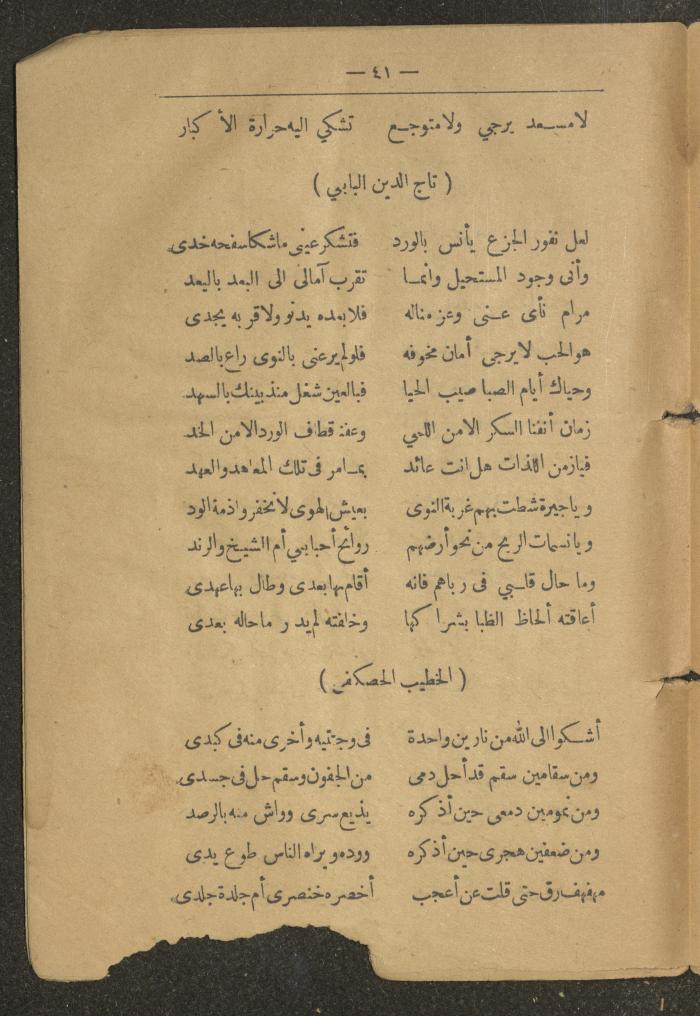 — ٤١ —
لا مسعد يرجي ولا متوجع تشكي اليه حرارة الأ كبار
( تاج الدين البابي )
لعل نفور الجزع يأنس بالورد فتشكر عيني ما شكا سفحه خدى
وأنى وجود المستحيل وانما تقرب آمالى الى البعد باليعد
مرام نأى عنى وعز مناله فلا بعده يدنو ولا قربه يجدى
هو الحب لا يرجى أمان مخوفه فلو لم يرعنى بالنوى راع بالصد
وحياك أيام الصبا صيب الحيا فبالعين شغل منذ بينك بالسهد
زمان أنفنا السكر الا من اللمي وعفنا قطاف الورد الا من الخد
فيا زمن اللذات هل انت عائد بما مر فى تلك المعاهد والعهد
ويا جيرة شطت بهم غربة النوى بعيش الهوى لا تخفروا ذمة الود
ويا نسمات الريح من نحو أرضهم روائح أحبابي أم الشيخ والرند
وما حال قلبي فى رباهم فانه أقام بها بعدى وطال بها عهدى
أعاقته ألحاظ الظبا بشرا كها وخلفته لم يدر ما حاله بعدى
( الخطيب الحصكفي )
أشكوا الى الله من نارين واحدة فى وجنتيه وأخرى منه فى كبدى
ومن سقامين سقم قد أحل دمى من الجفون وسقم حل فى جسدى
ومن نمومين دمعى حين أذكره يذيع سرى وواش منه بالرصد
ومن ضعفين هجرى حين أذكره ووده ويراه الناس طوع يدى
مهفهف رق حتى قلت عن أعجب أخصره خنصرى أم جلدة جلدى